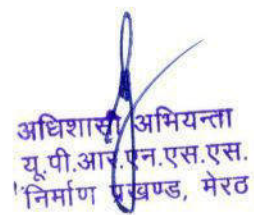 अधिशासी अभियन्ता
यू.पी.आर.एन.एस.एस.
निर्माण प्रखण्ड, मेरठ